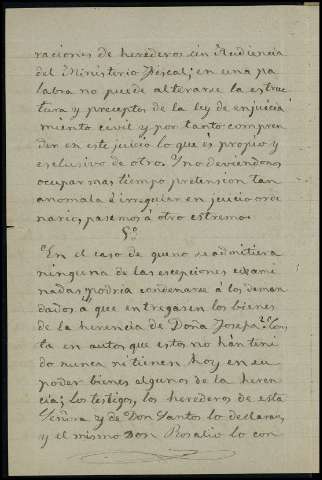 raciones de herederos sin Audiencia
del Ministerio Fiscal; en una pa
labra no puede alterarse la estruc
tura y preceptos de la ley de enjuicia
miento civil y por tanto compren
der en este juicio lo que és propio y
esclusivo de otro. Y no deviendonos
ocupar mas tiempo pretension tan
anomala é irregular en juicio ordi
nario, pasemos á otro estremo.
5º
¿En el caso de que no se admitiera
ninguna de las escepciones exami
nadas podria condenarse á los deman
dados á que entregasen los bienes
de la herencia de Doña Josepa? Cons
ta en autos que estos no hán teni
do nunca ni tienen hoy en su
poder bienes algunos de la heren
cia; los testigos, los herederos de esta
Señora y de Don Santos lo declaran,
y el mismo Don Rosalio lo con